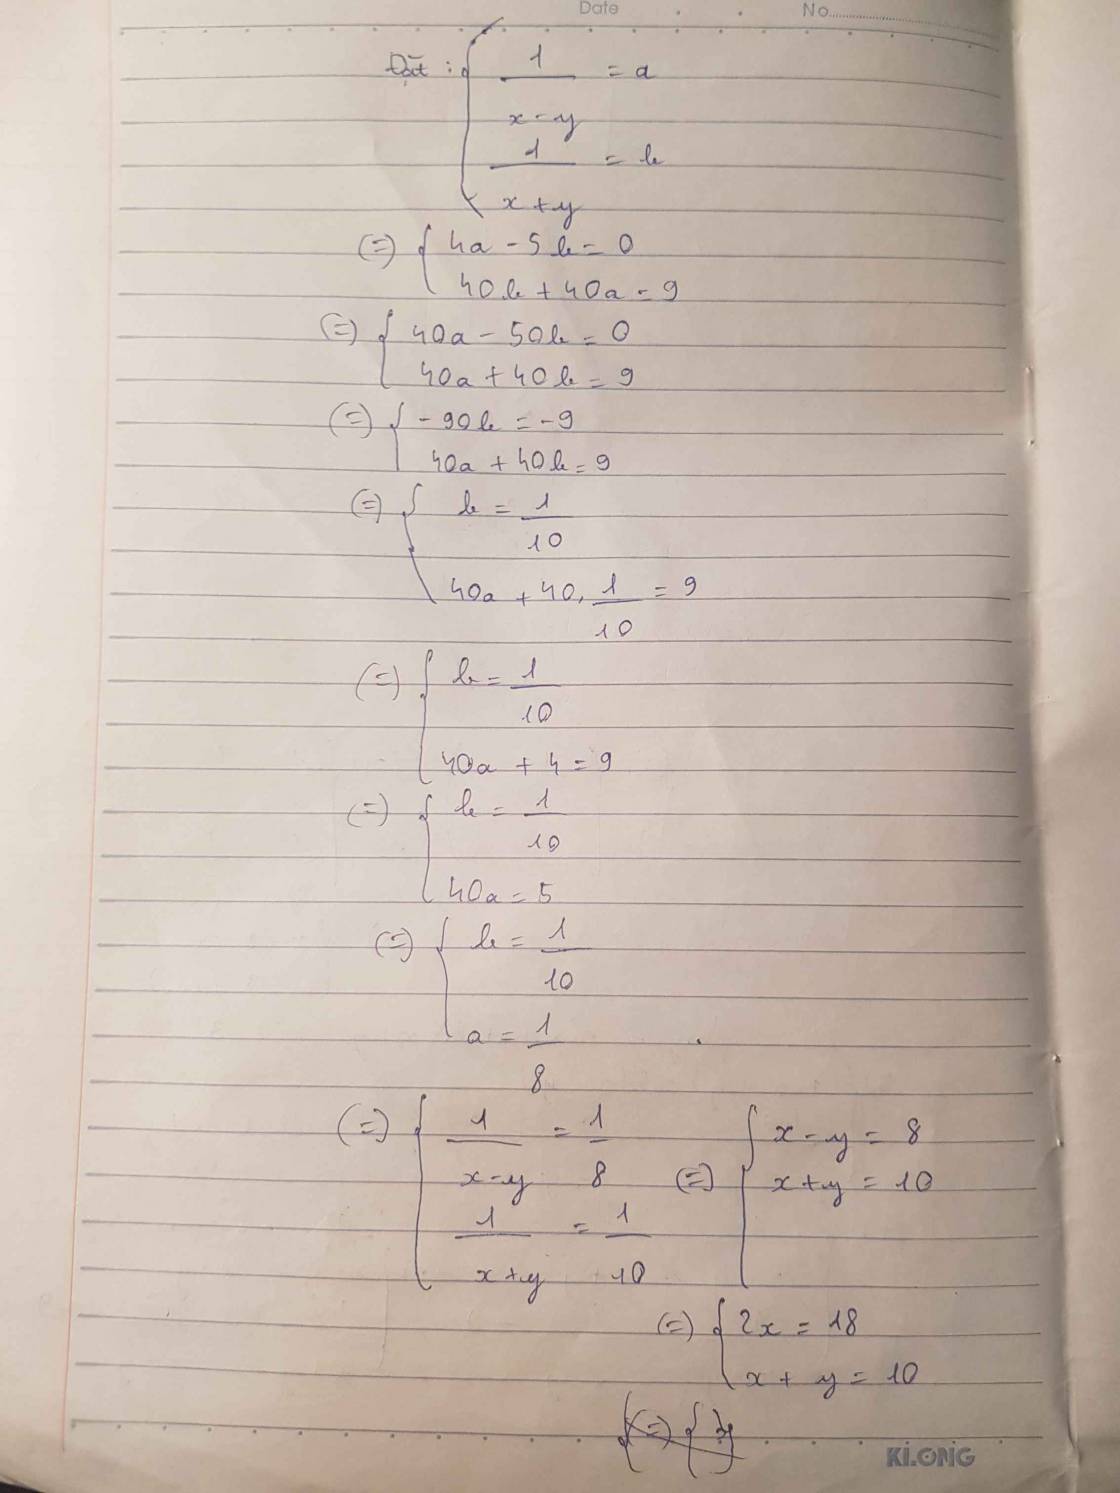 Date No
Đặt : { 1/(x-y) = a
1/(x+y) = b
(=) { 4a - 5b = 0
40b + 40a = 9
(=) { 40a - 50b = 0
40a + 40b = 9
(=) { -90b = -9
40a + 40b = 9
(=) { b = 1/10
40a + 40. 1/10 = 9
(=) { b = 1/10
40a + 4 = 9
(=) { b = 1/10
40a = 5
(=) { b = 1/10
a = 1/8
(=) { 1/(x-y) = 1/8
1/(x+y) = 1/10
(=) { x - y = 8
x + y = 10
(=) { 2x = 18
x + y = 10
KI.ONG